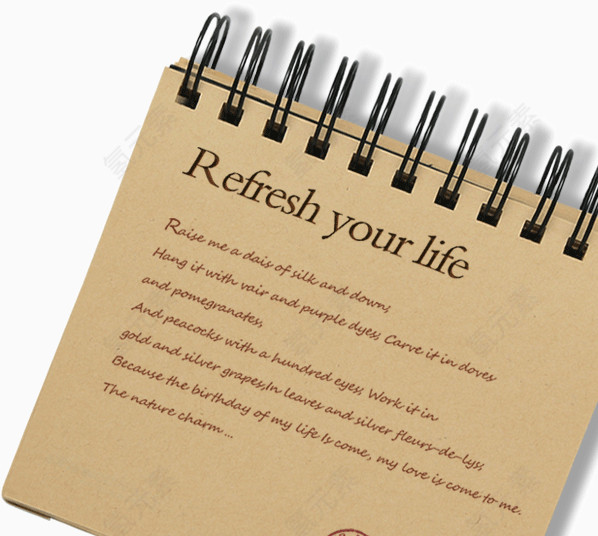 Refresh your life
Raise me a dais of silk and down;
Hang it with vair and purple dyes; Carve it in doves
and pomegranates,
And peacocks with a hundred eyes; Work it in
gold and silver grapes,In leaves and silver fleurs-de-lys;
Because the birthday of my life Is come, my love is come to me.
The nature charm ...